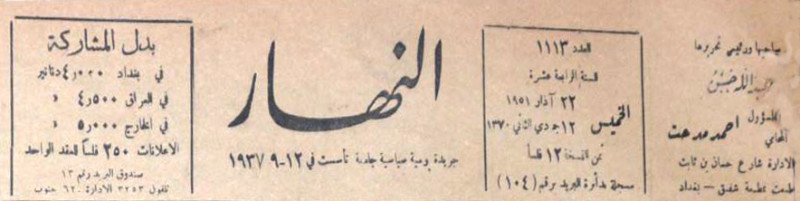 صاحبها ورئيس تحريرها
عبدالله حسن
المسؤول
المحامي احمد مدحت
الادارة شارع حسان بن ثابت
طبعت بمطبعة شفيق - بغداد
العدد ١١١٣
السنة الرابعة عشرة
الخميس
٢٢ آذار ١٩٥١
١٢ جمادى الثاني ١٣٧٠
ثمن النسخة ١٢ فلساً
مسجلة بدائرة البريد برقم (١٠٤)
النهار
جريدة يومية سياسية جامعة تأسست في ١٢-٩-١٩٣٧
بدل المشاركة
في بغداد ٤٫٠٠٠ دنانير
في العراق ٤٫٥٠٠ »
في الخارج ٥٫٠٠٠ »
الاعلانات ٢٥٠ فلساً للعقد الواحد
صندوق البريد رقم ١٣
تلفون ٣٢٥٣ الادارة ٦٢٠ جنوب